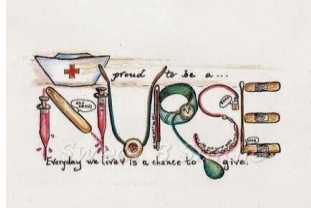 proud to be a...
NURSE
Everyday we live is a chance to give.